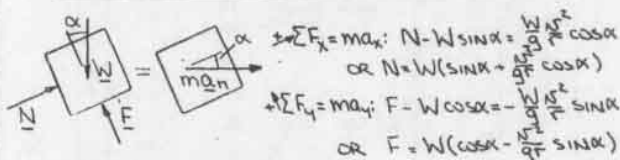 α W = α
N F ma_n
+↗ΣF_x = ma_x: N - W SINα = W/g v²/r COSα
OR N = W(SINα + v²/gr COSα)
+↖ΣF_y = ma_y: F - W COSα = - W/g v²/r SINα
OR F = W(COSα - v²/gr SINα)